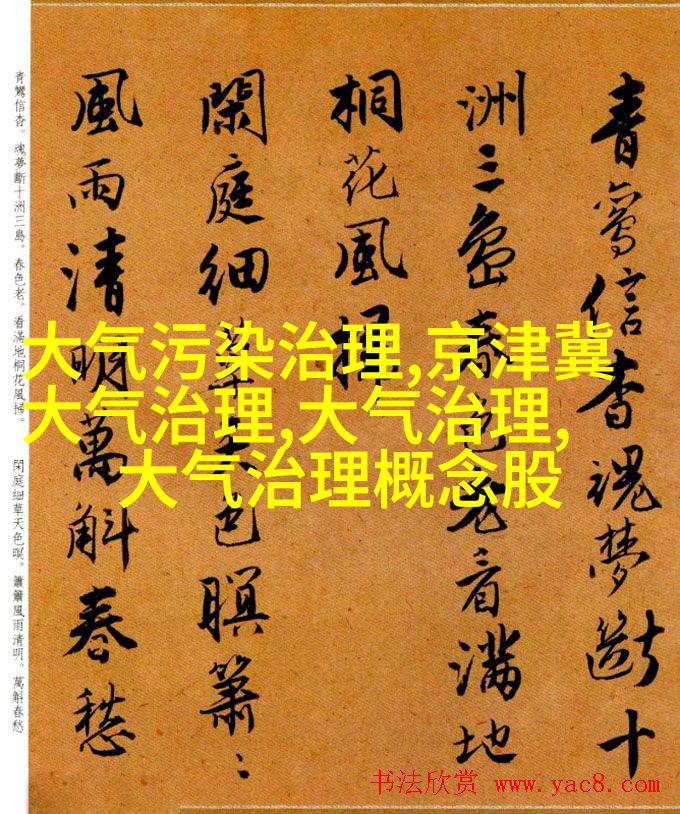 青鸞信杳魂夢斷十
洲三島春色老看滿地
桐花風掃
閑庭細草天色暝簫〻
風雨清明萬斛春愁
青鸞信杳。魂夢斷十洲三島。春色老。看滿地桐花風掃。 閑庭細草天色暝。簫簫風雨清明。萬斛春愁
大气污染治理,京津冀
大气治理,大气治理,
大气治理概念股
书法欣赏 www.yac8.com